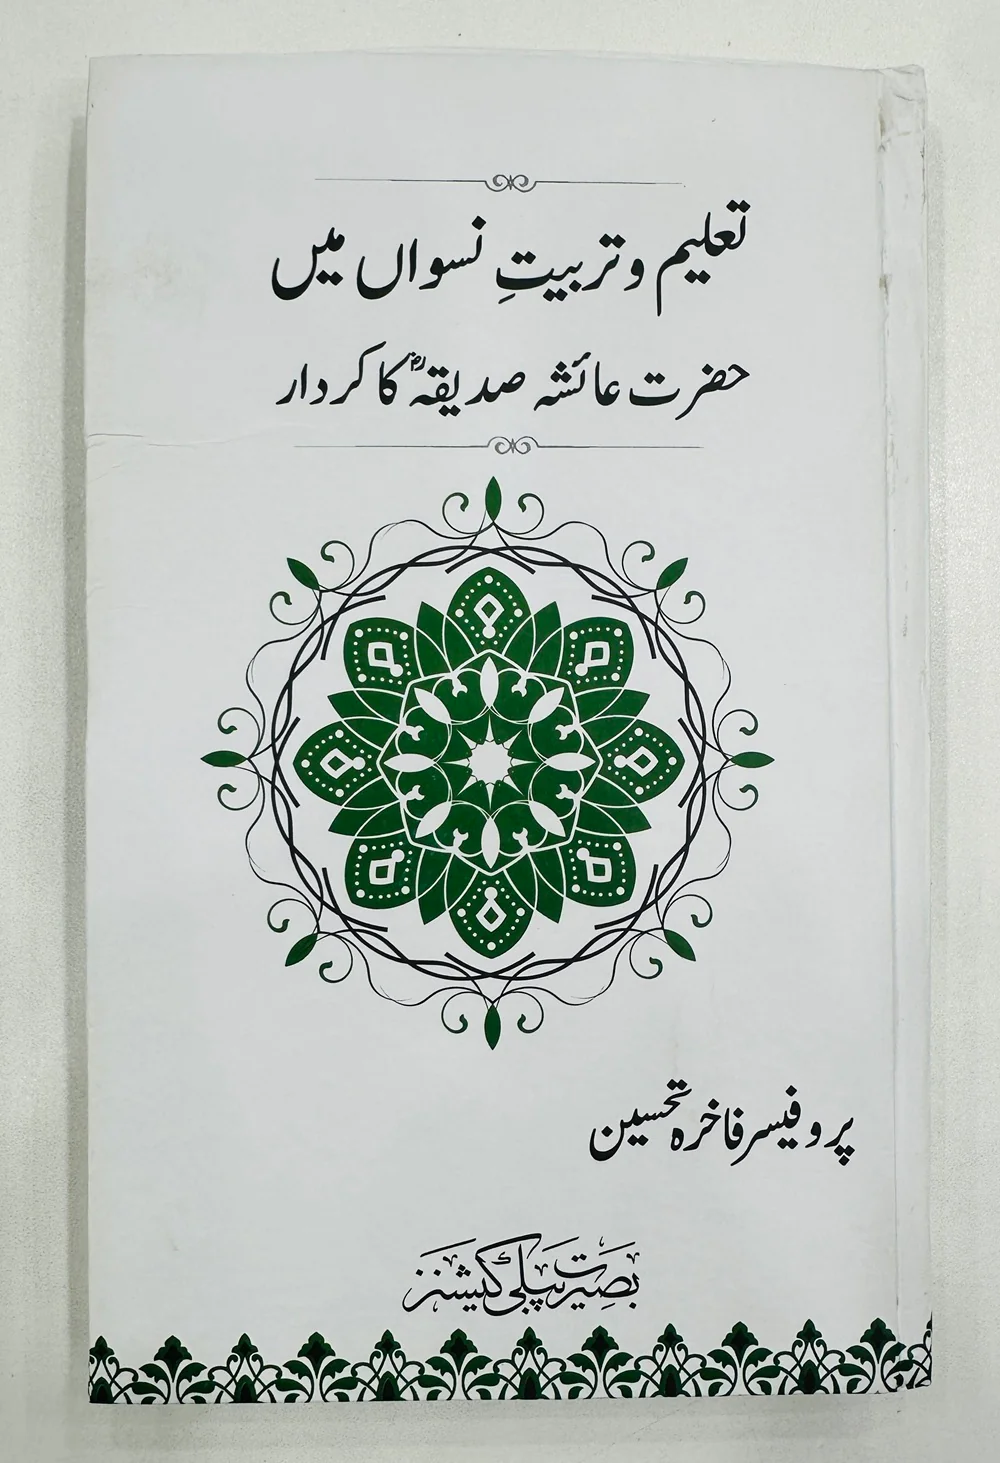 تعلیم و تربیتِ نسواں میں
حضرت عائشہ صدیقہؓ کا کردار
پروفیسر فاخرہ تحسین
بصیرت پبلی کیشنز